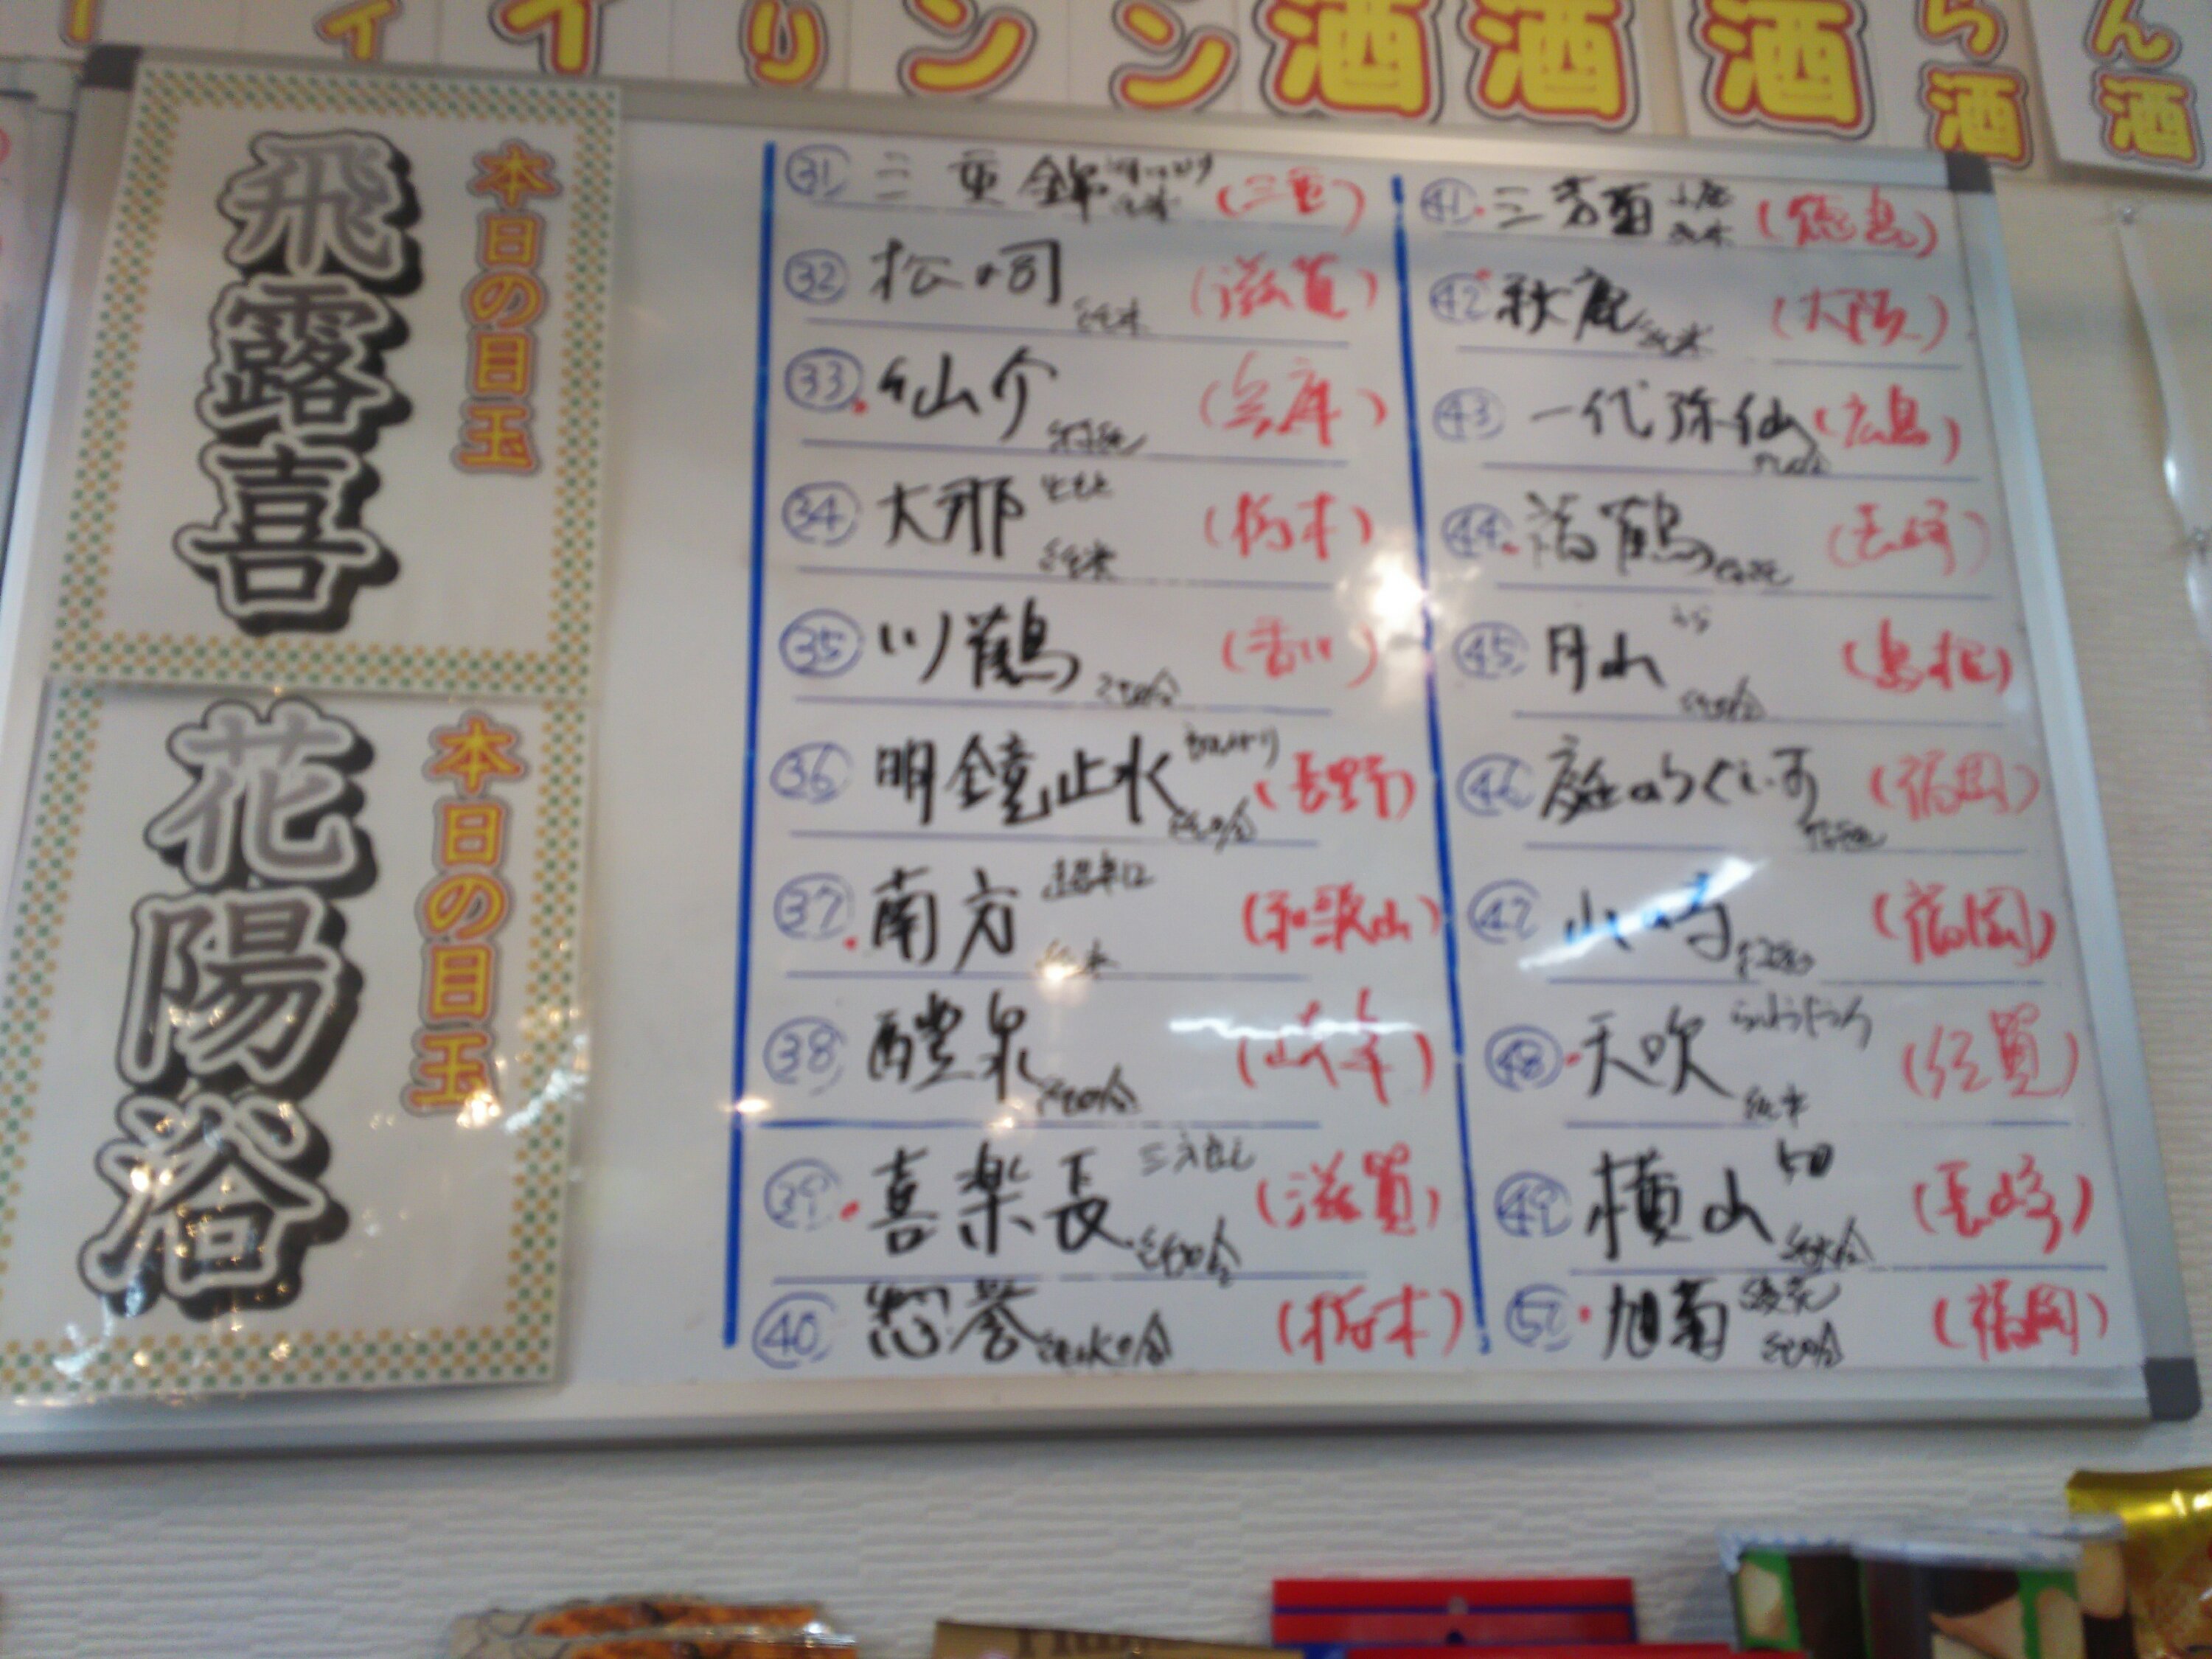 イ
イ
リ
ン
ン
酒
酒
酒
ら酒
ん酒
本日の目玉
飛露喜
本日の目玉
花陽浴
31 三重錦 (三重)
32 松の司 純米 (滋賀)
33 仙介 特純 (兵庫)
34 大那 純米 (栃木)
35 川鶴 (香川)
36 明鏡止水 純吟 (長野)
37 南方 超辛口 純米 (和歌山)
38 醴泉 純吟 (岐阜)
39 喜楽長 純吟 (滋賀)
40 惣誉 (栃木)
41 三芳菊 (徳島)
42 秋鹿 純米 (大阪)
43 一代弥山 (広島)
44 福鶴 (長崎)
45 月山 純吟 (島根)
46 庭のうぐいす 特純 (福岡)
47 山の寿 (福岡)
48 天吹 純米 (佐賀)
49 横山 50 (長崎)
50 旭菊 綾花 (福岡)